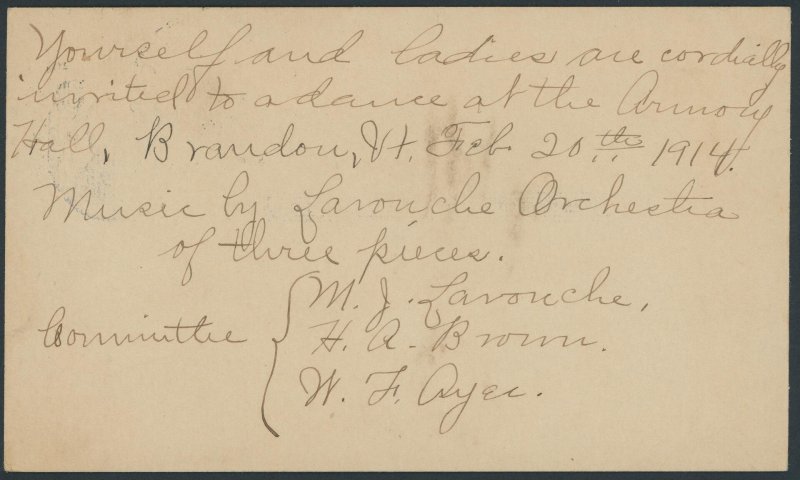 Yourself and ladies are cordially
invited to a dance at the Armory
Hall, Brandon, Vt. Feb. 20th 1914.
Music by Larouche Orchestra
of three pieces.
Committee { M. J. Larouche,
H. A. Brown.
W. F. Ayer.